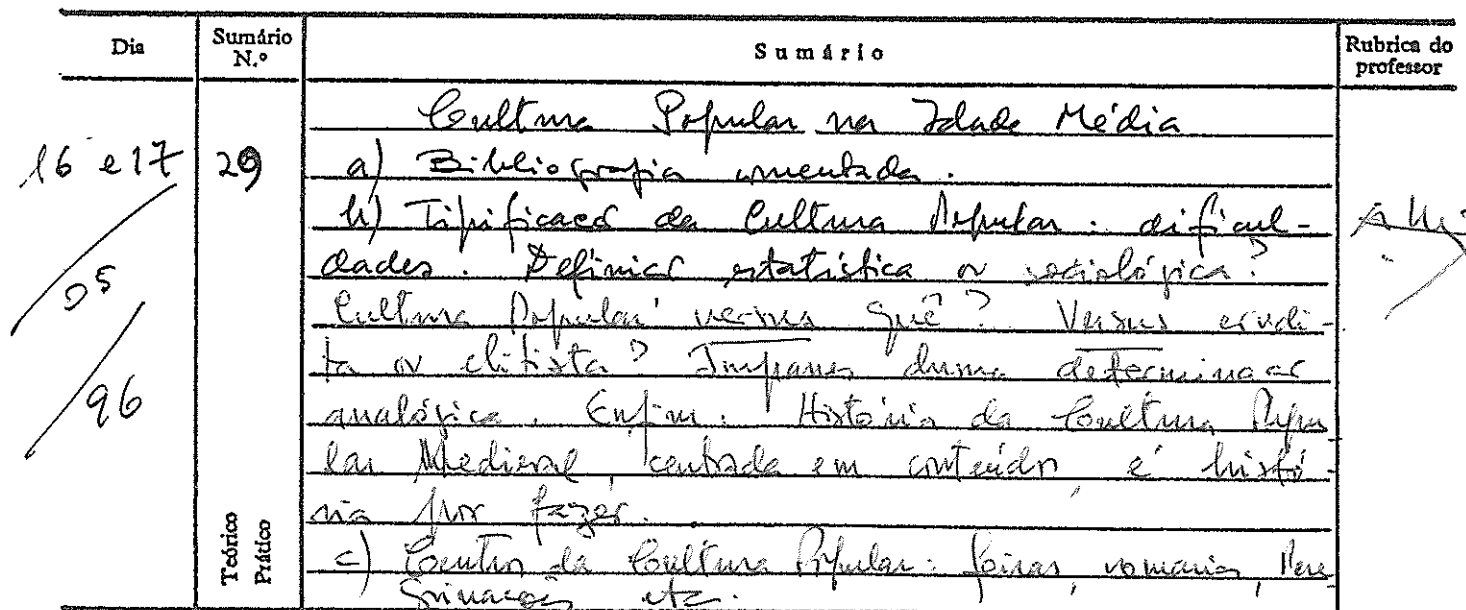 Dia Sumário N.º Sumário Rubrica do professor
Cultura Popular na Idade Média
16 e 17 29 a) Bibliografia comentada.
b) Tipificação da Cultura Popular: dificul-
dades. Definição estatística ou sociológica?
05 Cultura Popular versus quê? Versus erudi-
ta ou elitista? Impasses duma determinação
96 analógica. Enfim: História da Cultura Popu
lar Medieval, centrada em conteúdos, é histó-
ria por fazer.
Teórico Prático c) Centros da Cultura Popular: feiras, romarias, Pere
grinações etc.